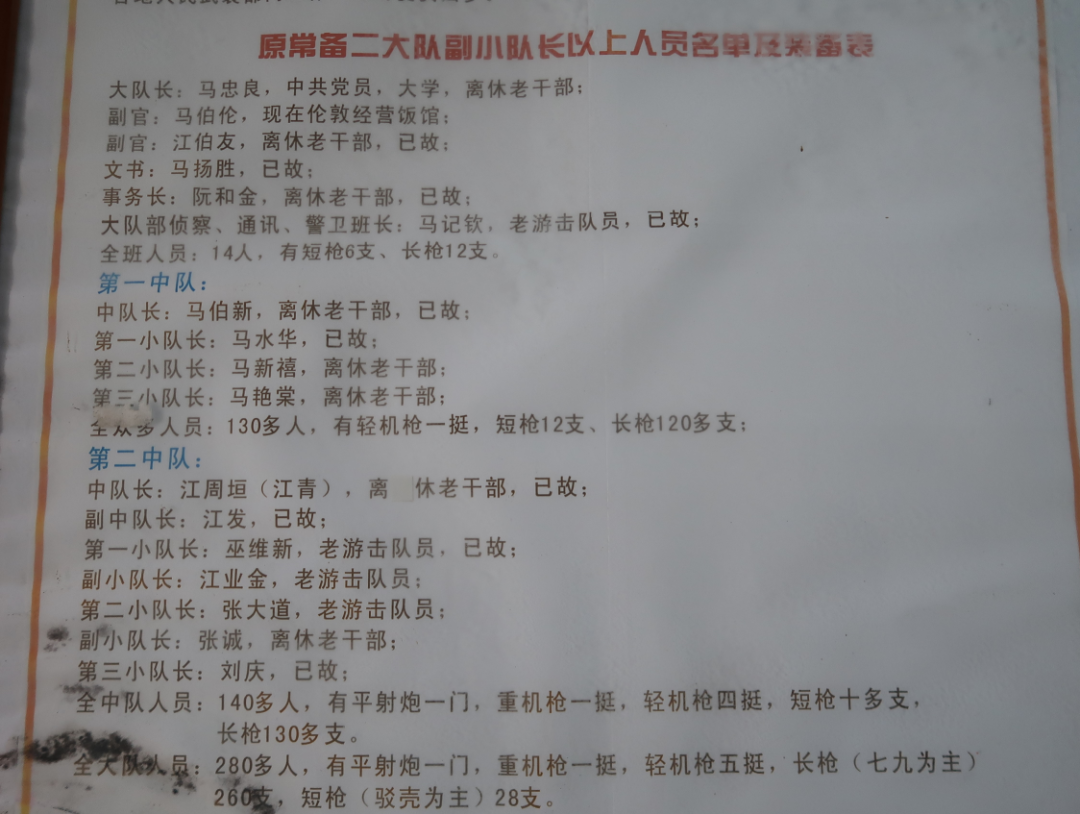 原常备二大队副小队长以上人员名单及装备表
大队长：马忠良，中共党员，大学，离休老干部；
副官：马伯伦，现在伦敦经营饭馆；
副官：江伯友，离休老干部，已故；
文书：马扬胜，已故；
事务长：阮和金，离休老干部，已故；
大队部侦察、通讯、警卫班长：马记钦，老游击队员，已故；
全班人员：14人，有短枪6支、长枪12支。
第一中队：
中队长：马伯新，离休老干部，已故；
第一小队长：马水华，已故；
第二小队长：马新禧，离休老干部；
第三小队长：马艳棠，离休老干部；
全众多人员：130多人，有轻机枪一挺，短枪12支、长枪120多支；
第二中队：
中队长：江周垣（江青），离 休老干部，已故；
副中队长：江发，已故；
第一小队长：巫维新，老游击队员，已故；
副小队长：江业金，老游击队员；
第二小队长：张大道，老游击队员；
副小队长：张诚，离休老干部；
第三小队长：刘庆，已故；
全中队人员：140多人，有平射炮一门，重机枪一挺，轻机枪四挺，短枪十多支，
长枪130多支。
全大队人员：280多人，有平射炮一门，重机枪一挺，轻机枪五挺，长枪（七九为主）
260支，短枪（驳壳为主）28支。